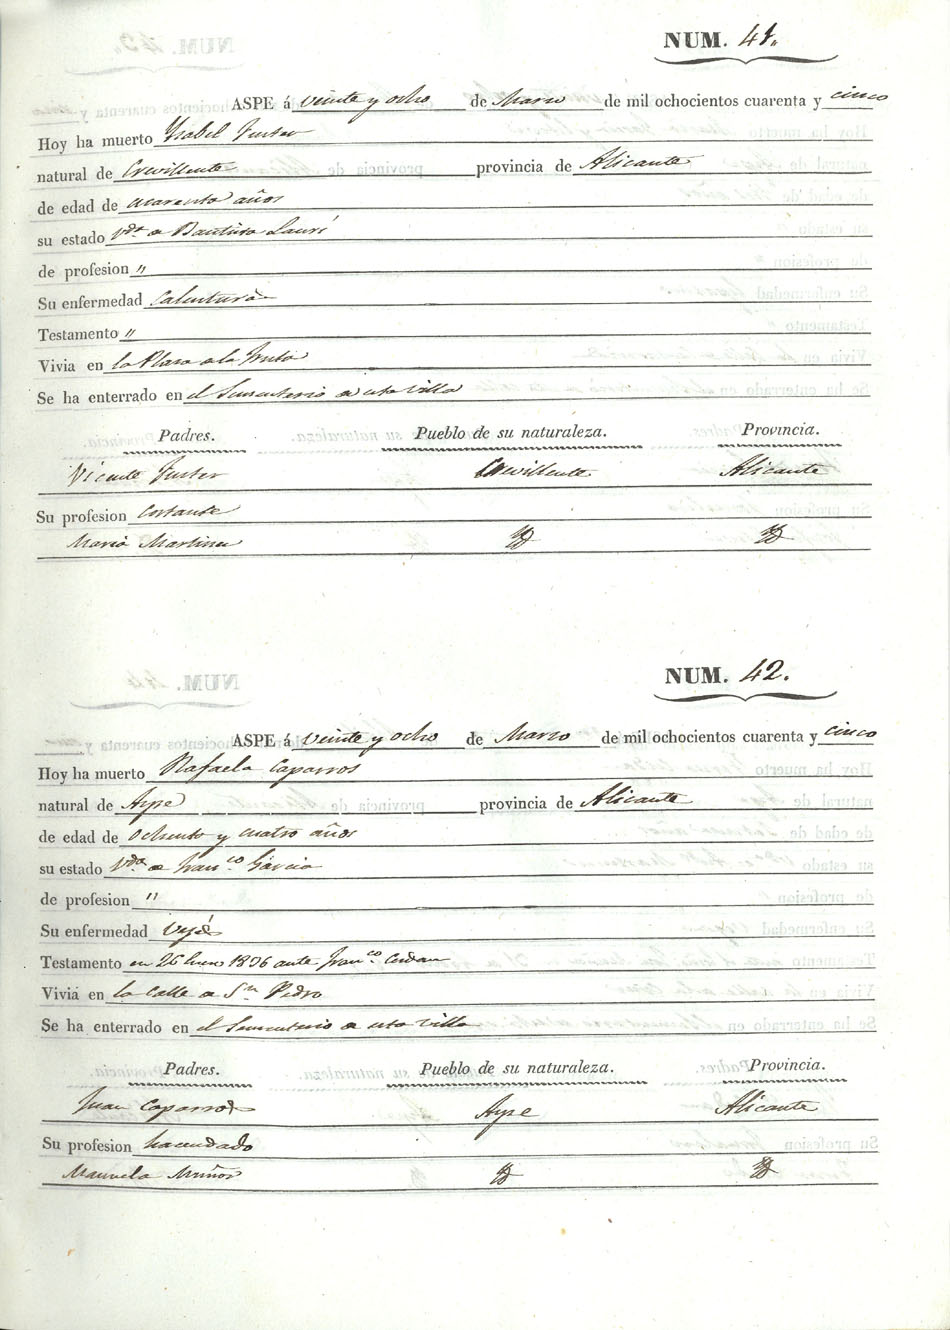 NUM. 41.
ASPE á veinte y ocho de Marzo de mil ochocientos cuarenta y cinco
Hoy ha muerto Ysabel Fuster
natural de Crevillente provincia de Alicante
de edad de cuarenta años
su estado Vda. de Bautista
de profesion "
Su enfermedad Calentura
Testamento "
Vivia en la Plaza de la Fruta
Se ha enterrado en el Sementerio de esta villa
Padres. Pueblo de su naturaleza. Provincia.
Vicente Fuster Crevillente Alicante
Su profesion Cortante
Maria Martinez Yd Yd
NUM. 42.
ASPE á veinte y ocho de Marzo de mil ochocientos cuarenta y cinco
Hoy ha muerto Rafaela Caparros
natural de Aspe provincia de Alicante
de edad de ochenta y cuatro años
su estado Vda. de Franco. Garcia
de profesion "
Su enfermedad Vejés
Testamento en 26 Enero 1836 ante Franco. Cerdan
Vivia en la Calle de Sn. Pedro
Se ha enterrado en el Sementerio de esta villa
Padres. Pueblo de su naturaleza. Provincia.
Juan Caparros Aspe Alicante
Su profesion hacendado
Manuela Muñoz Yd Yd